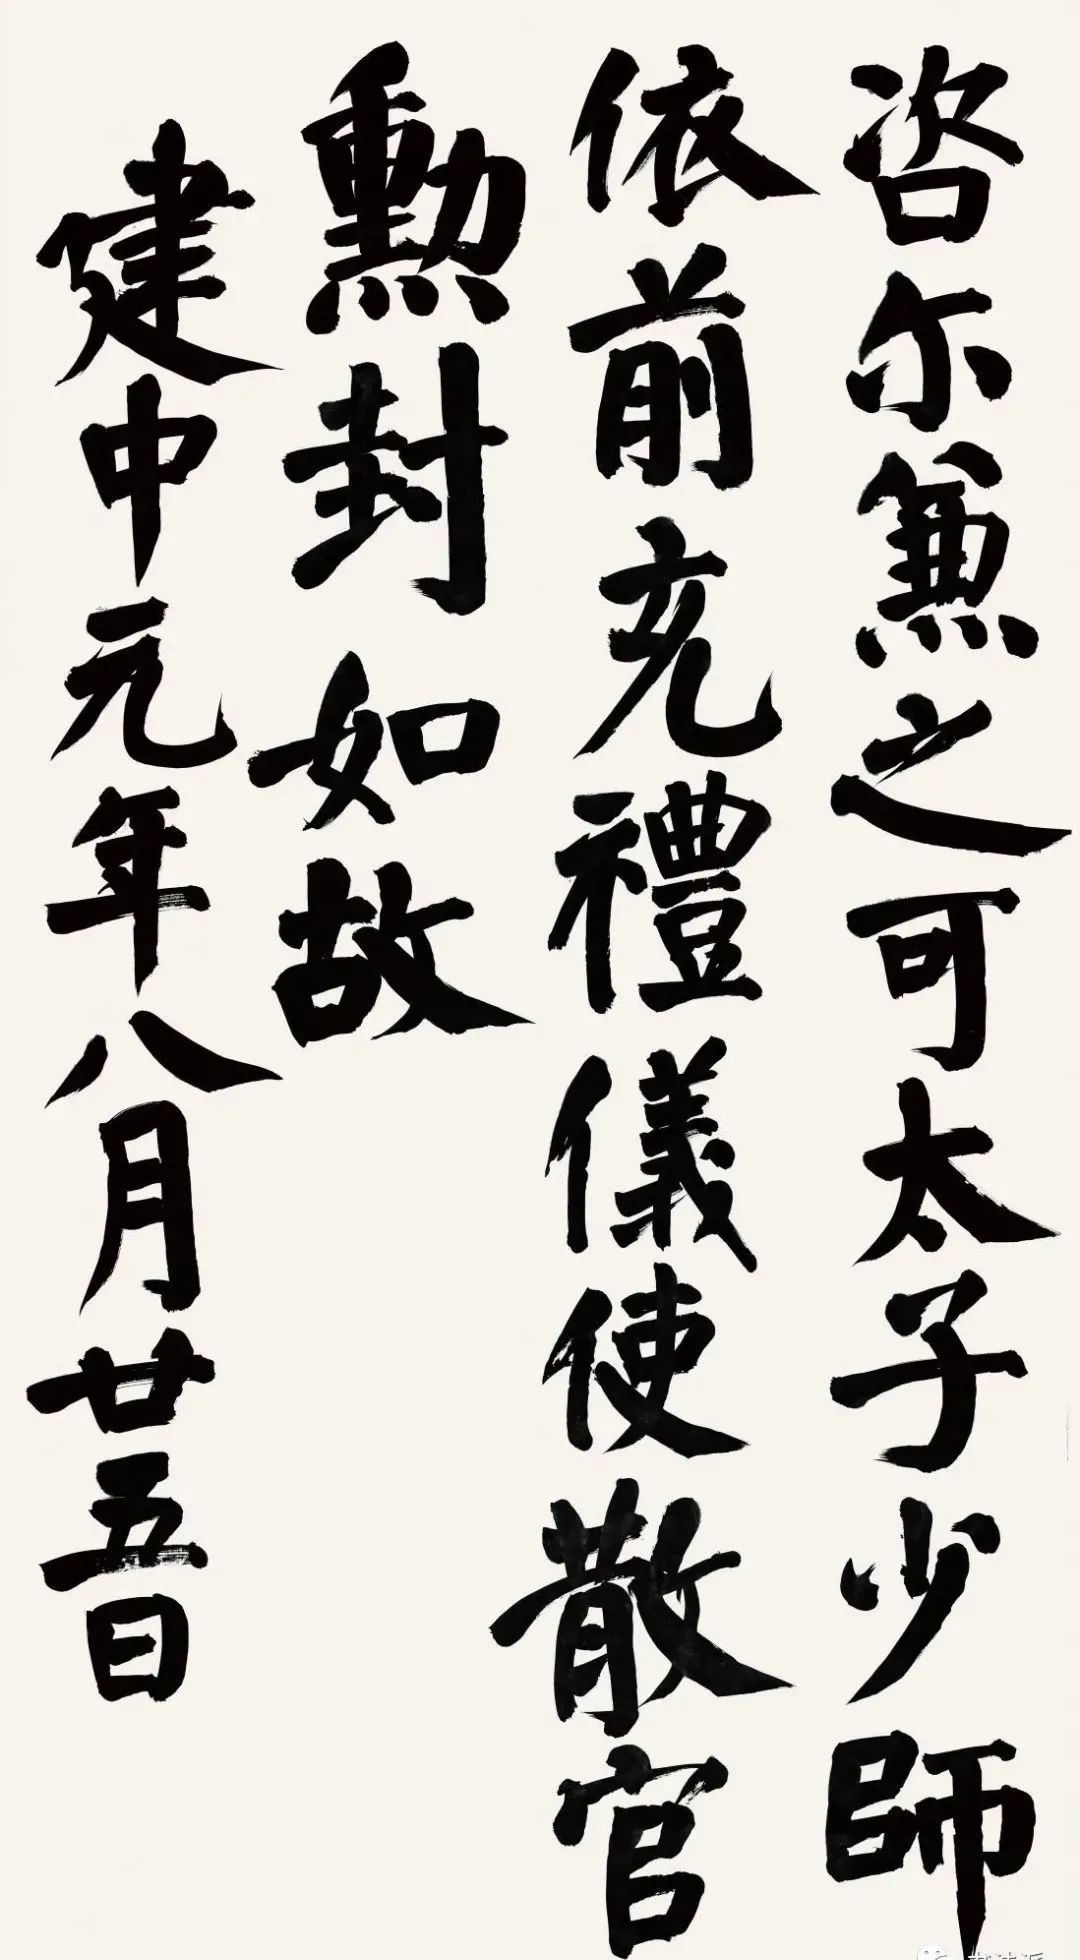 咨尔兼之可太子少師
依前充禮儀使散官
勲封如故
建中元年八月廿五日